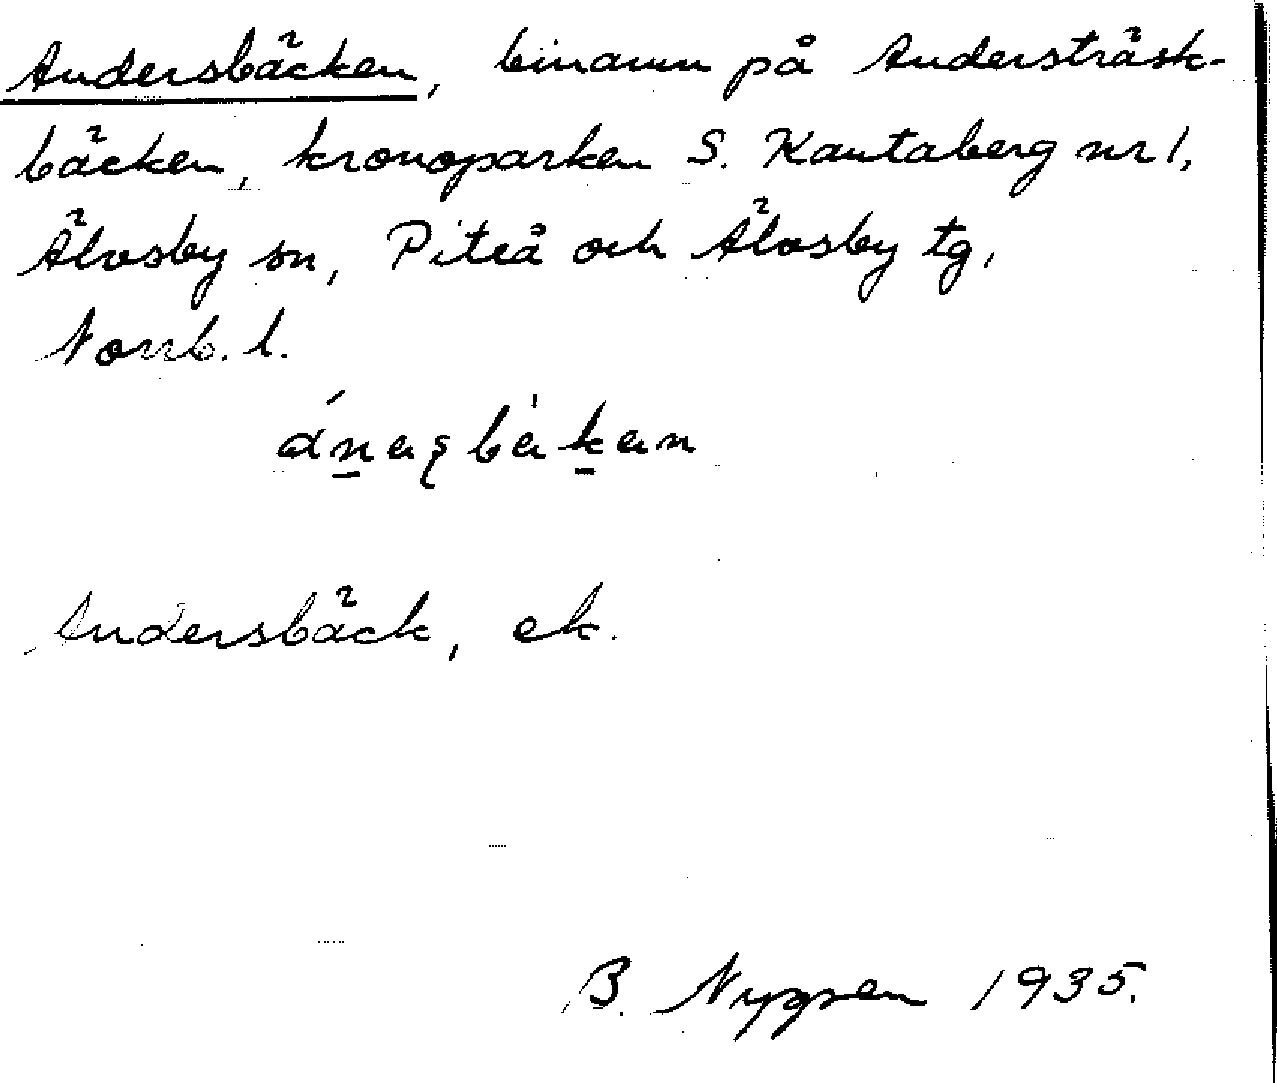 Andersbäcken, binamn på Andersträsk-
bäcken, kronoparken S. Kantaberg nr 1,
Älvsby sn, Piteå och Älvsby tg,
Norrb. l.
ánaʂbàkan
Andersbäck, ek.
B. Nygren 1935.